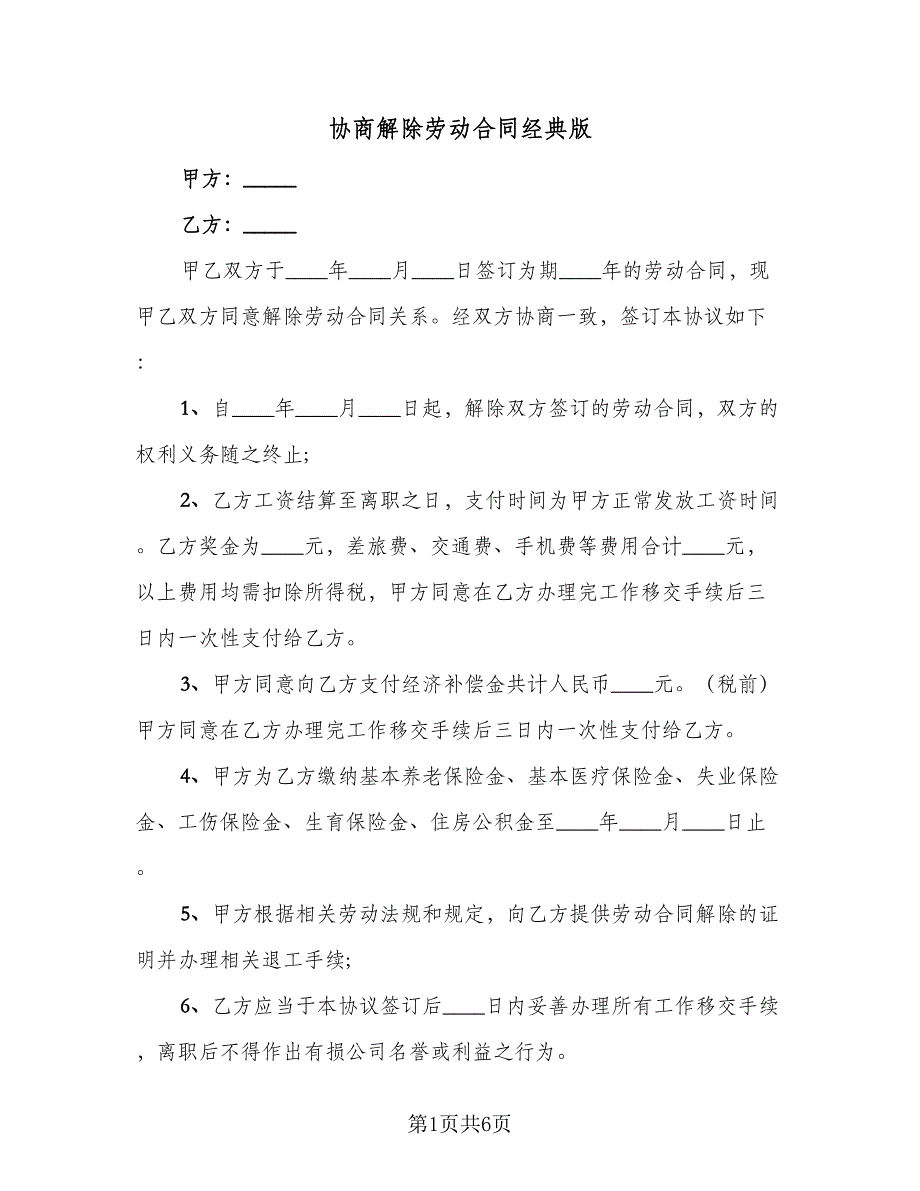 协商解除劳动合同经典版
甲方：_____
乙方：_____
甲乙双方于____年____月____日签订为期____年的劳动合同，现
甲乙双方同意解除劳动合同关系。经双方协商一致，签订本协议如下
：
1、自____年____月____日起，解除双方签订的劳动合同，双方的
权利义务随之终止;
2、乙方工资结算至离职之日，支付时间为甲方正常发放工资时间
。乙方奖金为____元，差旅费、交通费、手机费等费用合计____元，
以上费用均需扣除所得税，甲方同意在乙方办理完工作移交手续后三
日内一次性支付给乙方。
3、甲方同意向乙方支付经济补偿金共计人民币____元。（税前）
甲方同意在乙方办理完工作移交手续后三日内一次性支付给乙方。
4、甲方为乙方缴纳基本养老保险金、基本医疗保险金、失业保险
金、工伤保险金、生育保险金、住房公积金至____年____月____日止
。
5、甲方根据相关劳动法规和规定，向乙方提供劳动合同解除的证
明并办理相关退工手续;
6、乙方应当于本协议签订后____日内妥善办理所有工作移交手续
，离职后不得作出有损公司名誉或利益之行为。
第1页共6页